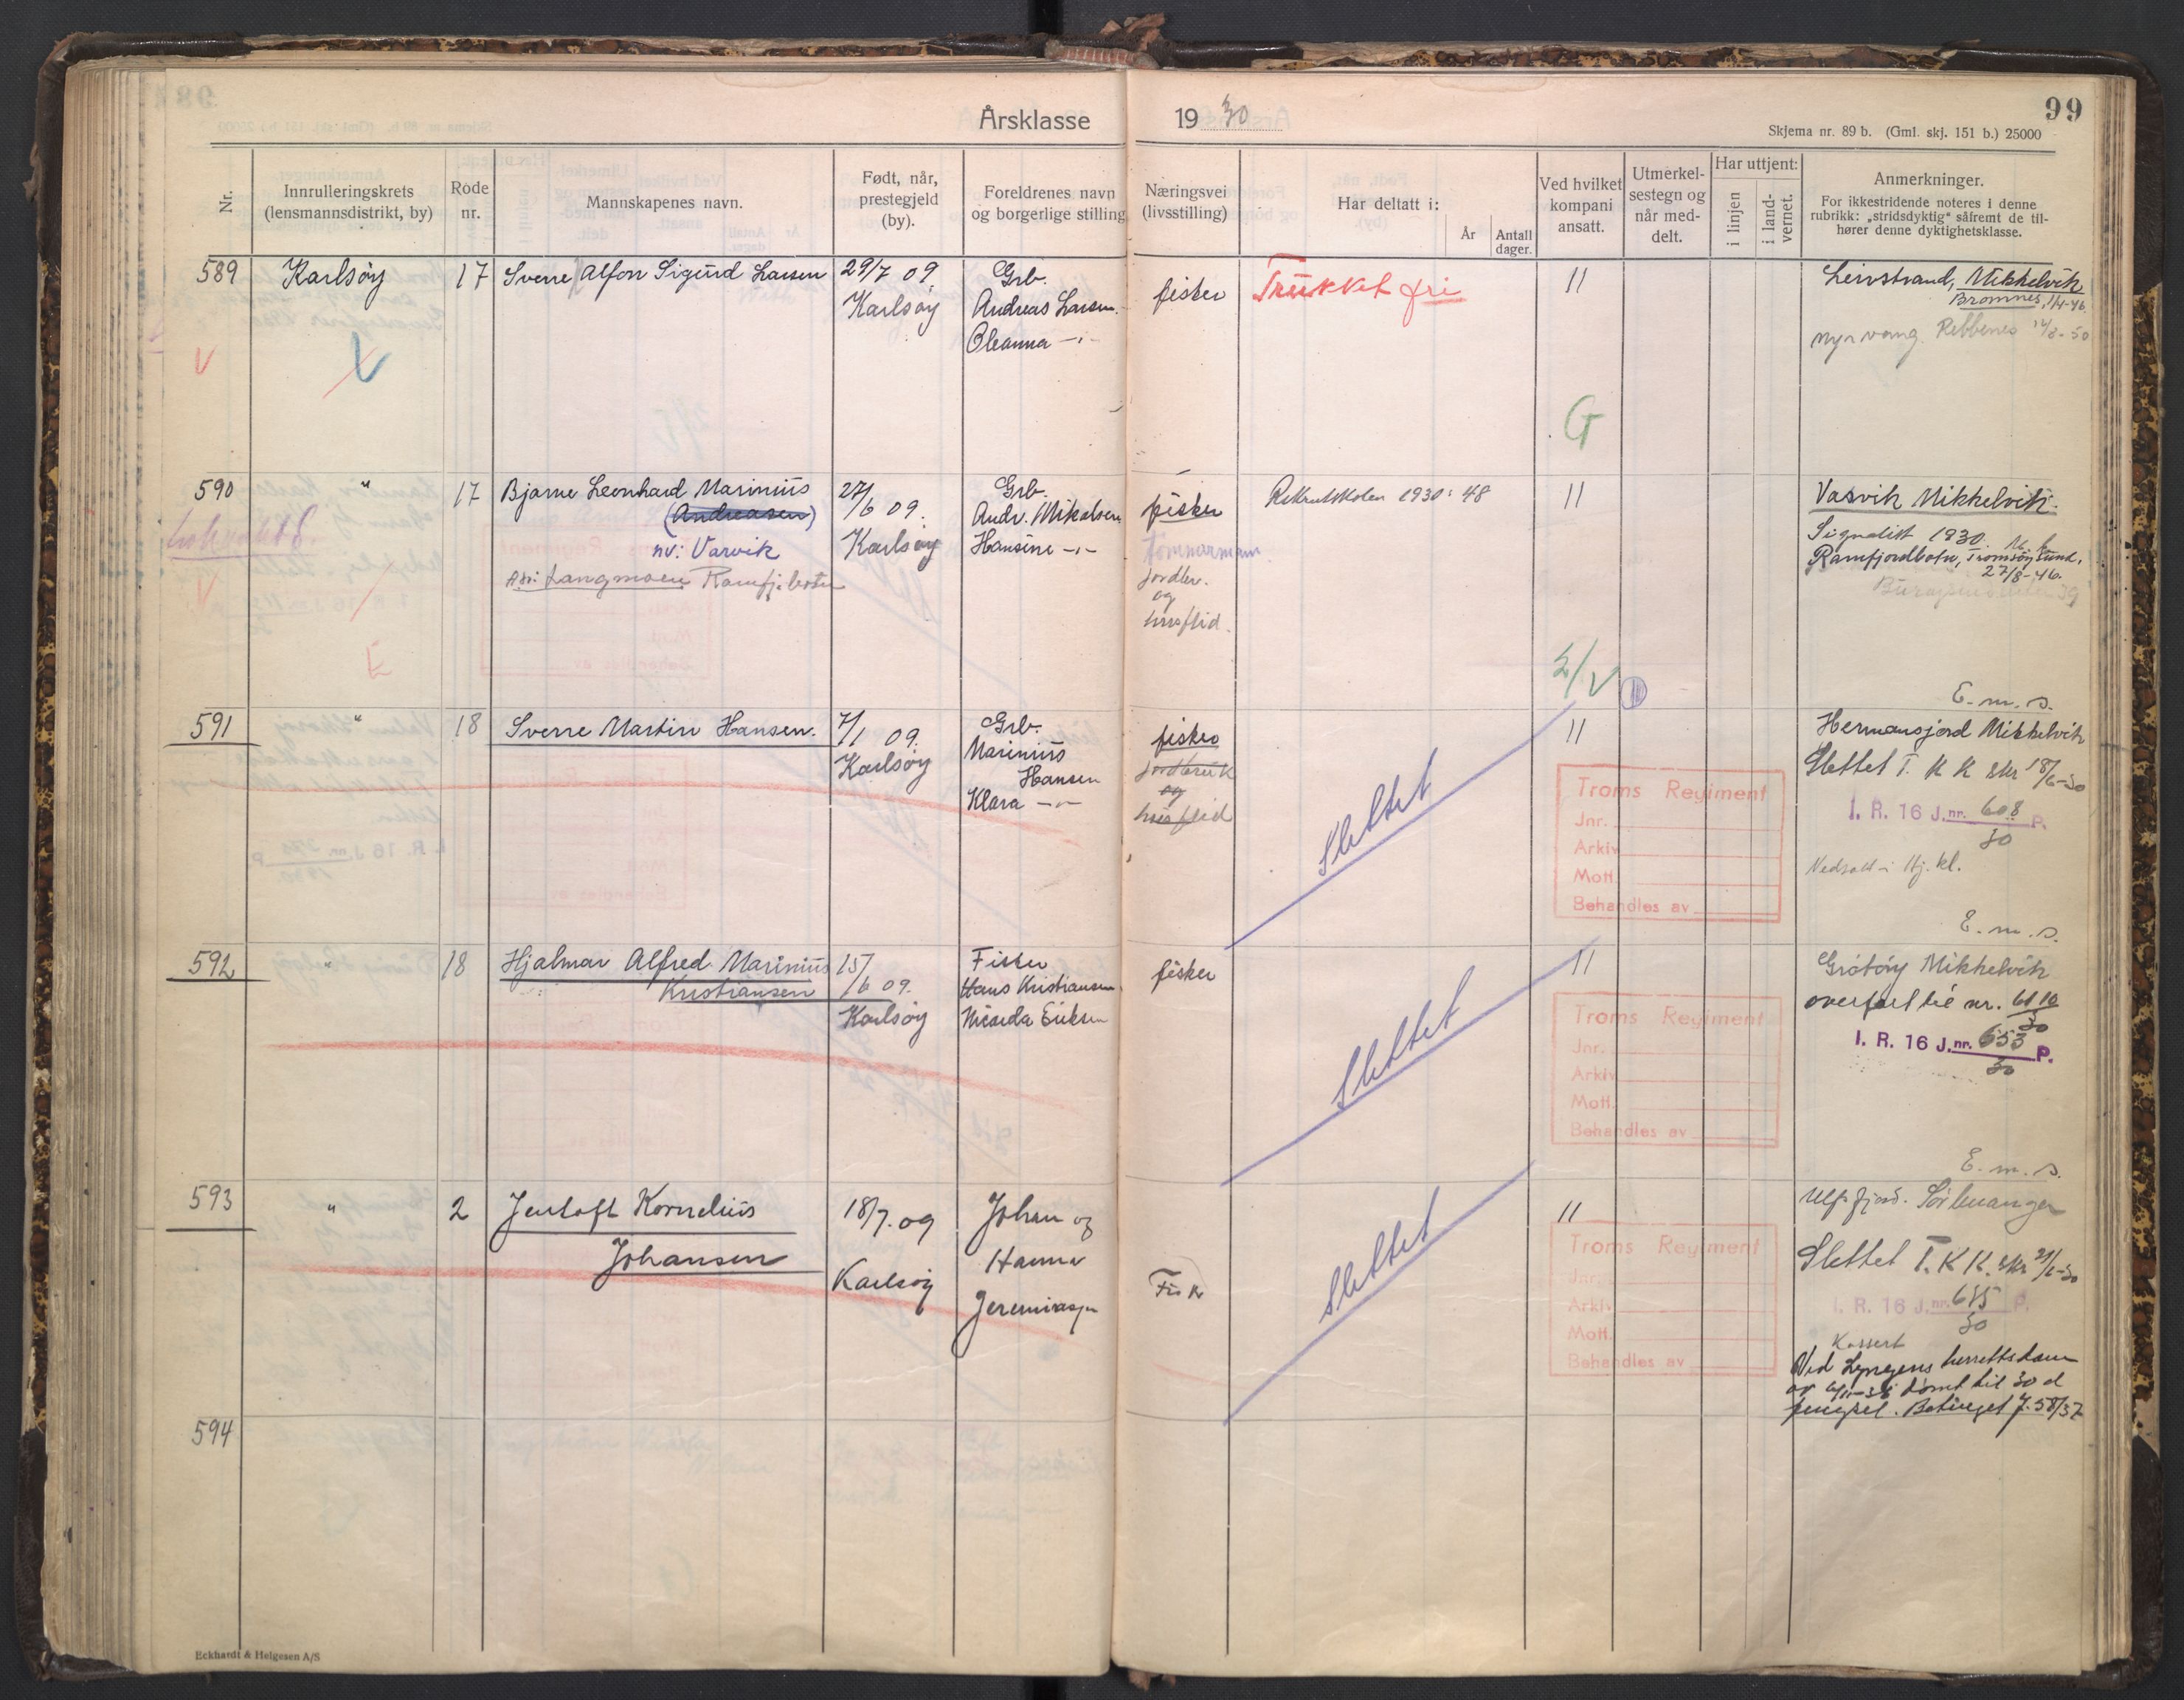 99
Årsklasse 1930
Skjema nr. 89 b. (Gml. skj. 151 b.) 25000
Nr.
Innrulleringskrets
(lensmannsdistrikt, by)
Rode
nr.
Mannskapenes navn.
Født, når,
prestegjeld
(by).
Foreldrenes navn
og borgerlige stilling
Næringsvei
(livsstilling)
Har deltatt i:
År
Antall
dager.
Ved hvilket
kompani
ansatt.
Utmerkel-
sestegn og
når med-
delt.
Har uttjent:
i linjen
i land-
vernet.
Anmerkninger.
For ikkestridende noteres i denne
rubrikk: „stridsdyktig“ såfremt de til-
hører denne dyktighetsklasse.
589
Karlsøy
V
V
17
Sverre Alfon Sigurd Larsen
29/7 09.
Karlsøy
Grb.
Andreas Larsen.
Oleanna -"-
fisker
Trukket fri
11
G
Leirstrand, Mikkelvik
Bromnes,
Rebbenes 12/8-50
590
"
V
E
17
Bjarne Leonhard Marinius
(Andreasen)
nv: Varvik
Langmoen Ramfj.botn
27/6 09.
Karlsøy
Grb.
Andr. Mikalsen
Hansine -"-
fisker
Tømmermann
Jordbr.
og
husflid.
Rekrutskolen 1930: 48
11
Vasvik Mikkelvik.
Signalist 1930.
Ramfjordbotn, Tromsøysund.
27/8-46.
591
"
18
Sverre Martin Hansen.
7/1 09.
Karlsøy
Grb.
Marinius
Hansen
Klara -"-
fisker
Jordbruk
og
husflid
Slettet
11
Troms Regiment
Jnr.
Arkiv
Mott.
Behandles av
E. m. s.
Hermansjord Mikkelvik
Slettet T. K K skr 18/6-30
I. R. 16 J.nr. 608 P.
30
Nedsatt i Hj. kl.
592
"
18
Hjalmar Alfred Marinius
Kristiansen
15/6 09.
Karlsøy
Fisker
Hans Kristiansen
Nicarda Eriksen
fisker
Slettet
11
Troms Regiment
Jnr.
Arkiv
Mott.
Behandles av
E. m. s.
Grøtøy Mikkelvik
overført til nr. 61 10
30
I. R. 16 J.nr. 653 P.
30
593
"
2
Jentoft Kornelius
Johansen
18/7.09
Karlsøy
Johan og
Hanna
Jeremiasen
Fisk
Slettet
11
Troms Regiment
Jnr.
Arkiv
Mott.
Behandles av
E. m. s.
Ulfsfjord. Sørlenangen
Slettet T. K K. skr 21/6-30
I. R. 16 J.nr. 685 P.
30
Kassert
Ved Lyngens herretts dom
dømt til 30 d
fengsel. Betinget J. 58/37
594
Eckhardt & Helgesen A/S